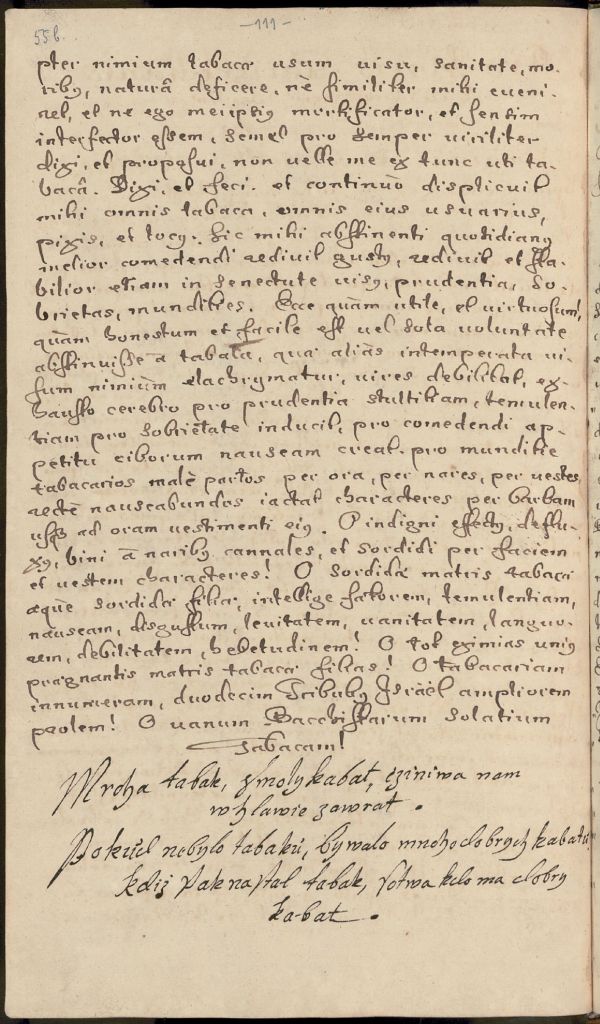 55b.
-111-
pter nimium tabacæ usum uisu, sanitate, mo-
ribus, naturâ deficere, nè similiter mihi eueni-
ret, et ne ego meiipsius mortificator, et sensim
interfector essem, semel pro semper uiriliter
dixi, et proposui, non uelle me ex tunc uti ta-
bacâ. Dixi, et feci. et continuò displicuit
mihi omnis tabaca, omnis eius usuarius,
pixis, et locus. Sic mihi abstinenti quotidianus
melior comedendi rediuit gustus, rediuit et sta-
bilior etiam in senectute uisus, prudentia, so-
brietas, mundities. Ecce quàm utile, et uirtuosum,
quàm honestum et facile est uel sola uoluntate
abstinuisse à tabaca, quæ aliàs intemperata ui-
sum nimiùm elachrymatur, uires debilitat, ex-
hausto cerebro pro prudentia stultitiam, temulen-
tiam pro sobrietate inducit, pro comedendi ap-
petitu ciborum nauseam creat. pro munditie
tabacarios malè partos per ora, per nares, per uestes
rectè nauseabundos iactat characteres per barbam
usque ad oram uestimenti eius. O indigni effectus, deflu-
xus, bini à naribus cannales, et sordidi per faciem
et uestem characteres! O sordidæ matris tabacæ
æquè sordidæ filiæ, intellige fætorem, temulentiam,
nauseam, disgustum, leuitatem, uanitatem, languo-
rem, debilitatem, hebetudinem! O tot eximias unius
prægnantis matris tabacæ filias! O tabacariam
innumeram, duodecim Tribubus Israël ampliorem
prolem! O uanum Bacchistarum solatium
Tabacam!
Mrcha tabak, smoly kabat, cziniwa nam
w hlawie zawrat.
Pokud nebylo tabaku, bywalo mnoho dobrych kabatu,
kdiz pak nastal tabak, sotwa kdo ma dobry
kabat.